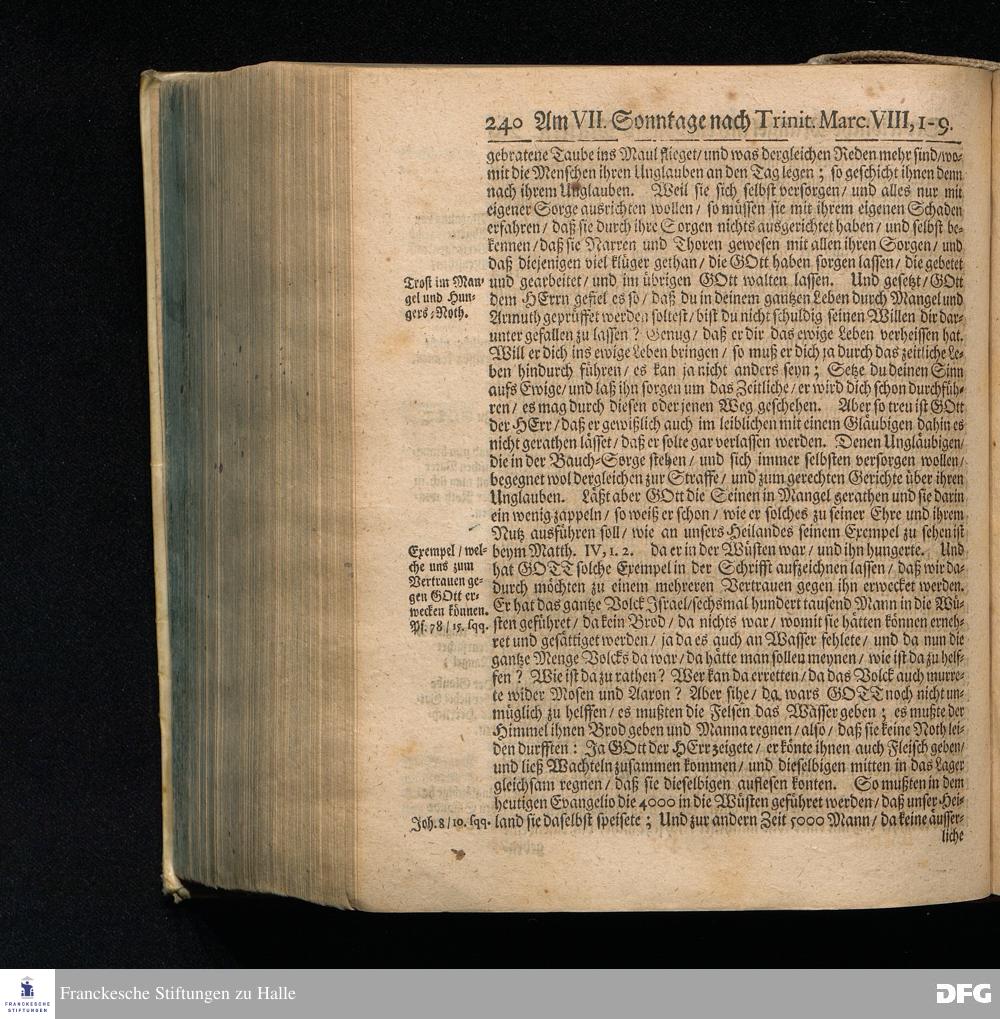 240 Am VII. Sonntage nach Trinit. Marc. VIII, 1-9.
gebratene Taube ins Maul flieget/ und was dergleichen Reden mehr sind/ wo-
mit die Menschen ihren Unglauben an den Tag legen; so geschicht ihnen denn
nach ihrem Unglauben. Weil sie sich selbst versorgen/ und alles nur mit
eigener Sorge ausrichten wollen/ so müssen sie mit ihrem eigenen Schaden
erfahren/ daß sie durch ihre Sorgen nichts ausgerichtet haben/ und selbst be-
kennen/ daß sie Narren und Thoren gewesen mit allen ihren Sorgen/ und
daß diejenigen viel klüger gethan/ die GOtt haben sorgen lassen/ die gebetet
Trost im Man-
gel und Hun-
gers-Noth.
und gearbeitet/ und im übrigen GOtt walten lassen. Und gesetzt/ GOtt
dem HErrn gefiel es so/ daß du in deinem gantzen Leben durch Mangel und
Armuth geprüffet werden soltest/ bist du nicht schuldig seinen Willen dir dar-
unter gefallen zu lassen? Genug/ daß er dir das ewige Leben verheissen hat.
Will er dich ins ewige Leben bringen/ so muß er dich ja durch das zeitliche Le-
ben hindurch führen/ es kan ja nicht anders seyn; Setze du deinen Sinn
aufs Ewige/ und laß ihn sorgen um das Zeitliche/ er wird dich schon durchfüh-
ren/ es mag durch diesen oder jenen Weg geschehen. Aber so treu ist GOtt
der HErr/ daß er gewißlich auch im leiblichen mit einem Gläubigen dahin es
nicht gerathen lässet/ daß er solte gar verlassen werden. Denen Ungläubigen/
die in der Bauch-Sorge stehen/ und sich immer selbsten versorgen wollen/
begegnet wol dergleichen zur Straffe/ und zum gerechten Gerichte über ihren
Unglauben. Läßt aber GOtt die Seinen in Mangel gerathen und sie darin
ein wenig zappeln/ so weiß er schon/ wie er solches zu seiner Ehre und ihrem
Nutz ausführen soll/ wie an unsers Heilandes seinem Exempel zu sehen ist
Exempel/ wel-
che uns zum
Vertrauen ge-
gen GOtt er-
wecken können.
Ps. 78/ 15. sqq.
beym Matth. IV, 1. 2. da er in der Wüsten war/ und ihn hungerte. Und
hat GOTT solche Exempel in der Schrifft aufzeichnen lassen/ daß wir da-
durch möchten zu einem mehreren Vertrauen gegen ihn erwecket werden.
Er hat das gantze Volck Israel/ sechsmal hundert tausend Mann in die Wü-
sten geführet/ da kein Brod/ da nichts war/ womit sie hätten können erneh-
ret und gesättiget werden/ ja da es auch an Wasser fehlete/ und da nun die
gantze Menge Volcks da war/ da hätte man sollen meynen/ wie ist da zu helf-
fen? Wie ist da zu rathen? Wer kan da erretten/ da das Volck auch murre-
te wider Mosen und Aaron? Aber sihe/ da wars GOTT noch nicht un-
müglich zu helffen/ es mußten die Felsen das Wasser geben; es mußte der
Himmel ihnen Brod geben und Manna regnen/ also/ daß sie keine Noth lei-
den durfften: Ja GOtt der HErr zeigete/ er könte ihnen auch Fleisch geben/
und ließ Wachteln zusammen kommen/ und dieselbigen mitten in das Lager
gleichsam regnen/ daß sie dieselbigen auflesen konten. So mußten in dem
heutigen Evangelio die 4000 in die Wüsten geführet werden/ daß unser Hei-
Joh. 8/ 10. sqq.
land sie daselbst speisete; Und zur andern Zeit 5000 Mann/ da keine äusser-
liche
FRANCKESCHE
STIFTUNGEN
Franckesche Stiftungen zu Halle
DFG